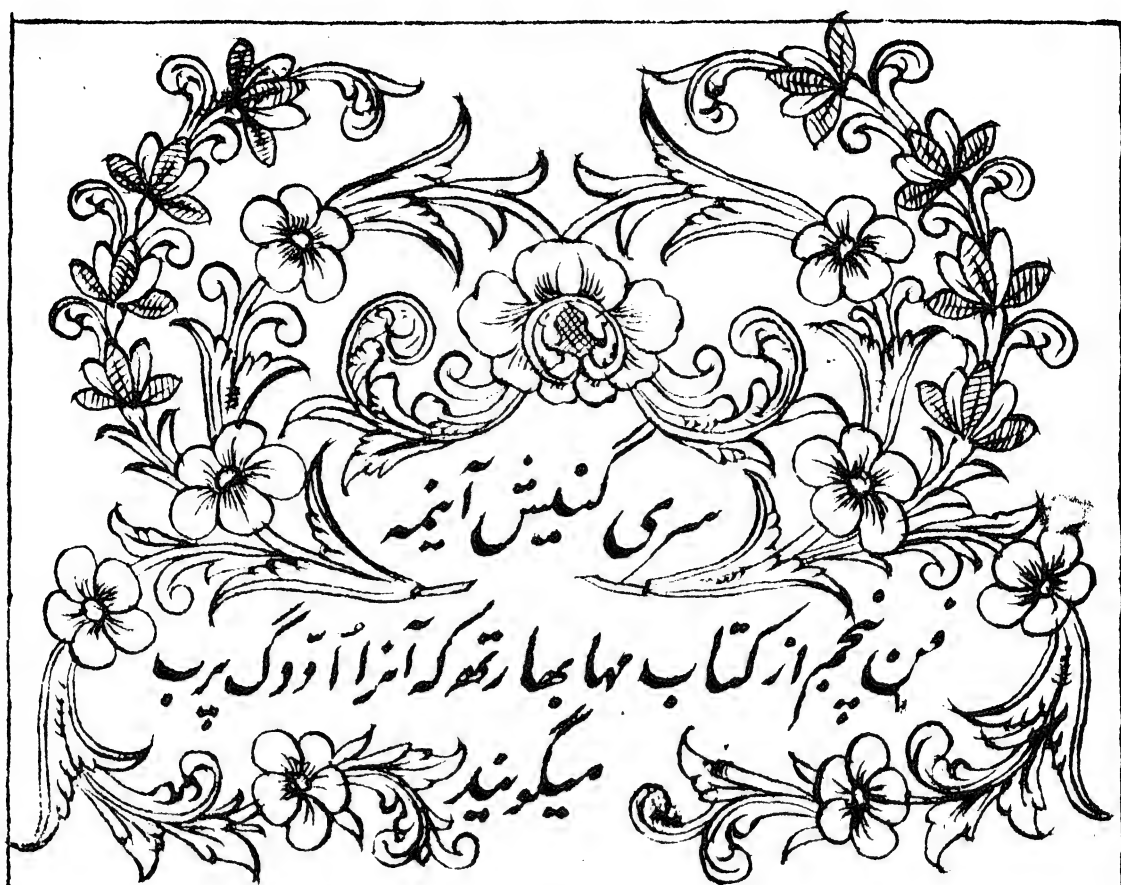 سری گنیش آینمه
فن پنجم از کتاب مهابهارتهه که آنرا اُدّوگ پرب
میگویند